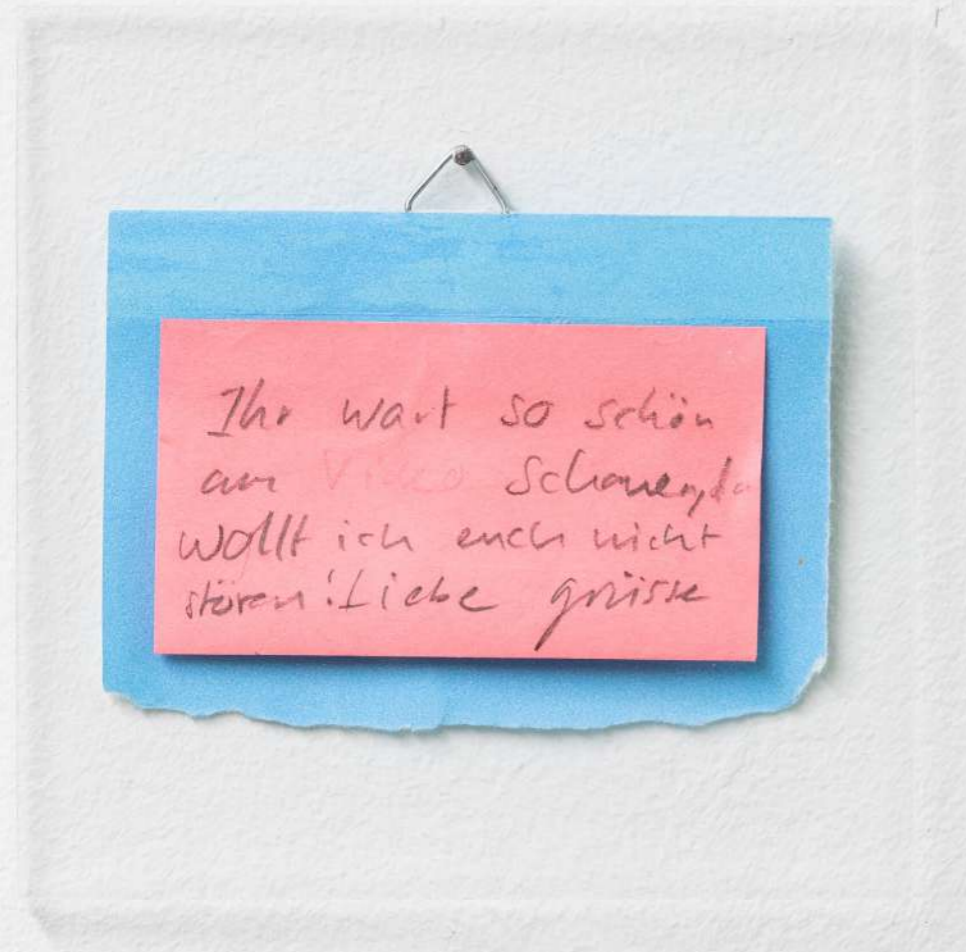 Ihr wart so schön
am Video schauen, da
wollt ich euch nicht
stören! Liebe grüsse